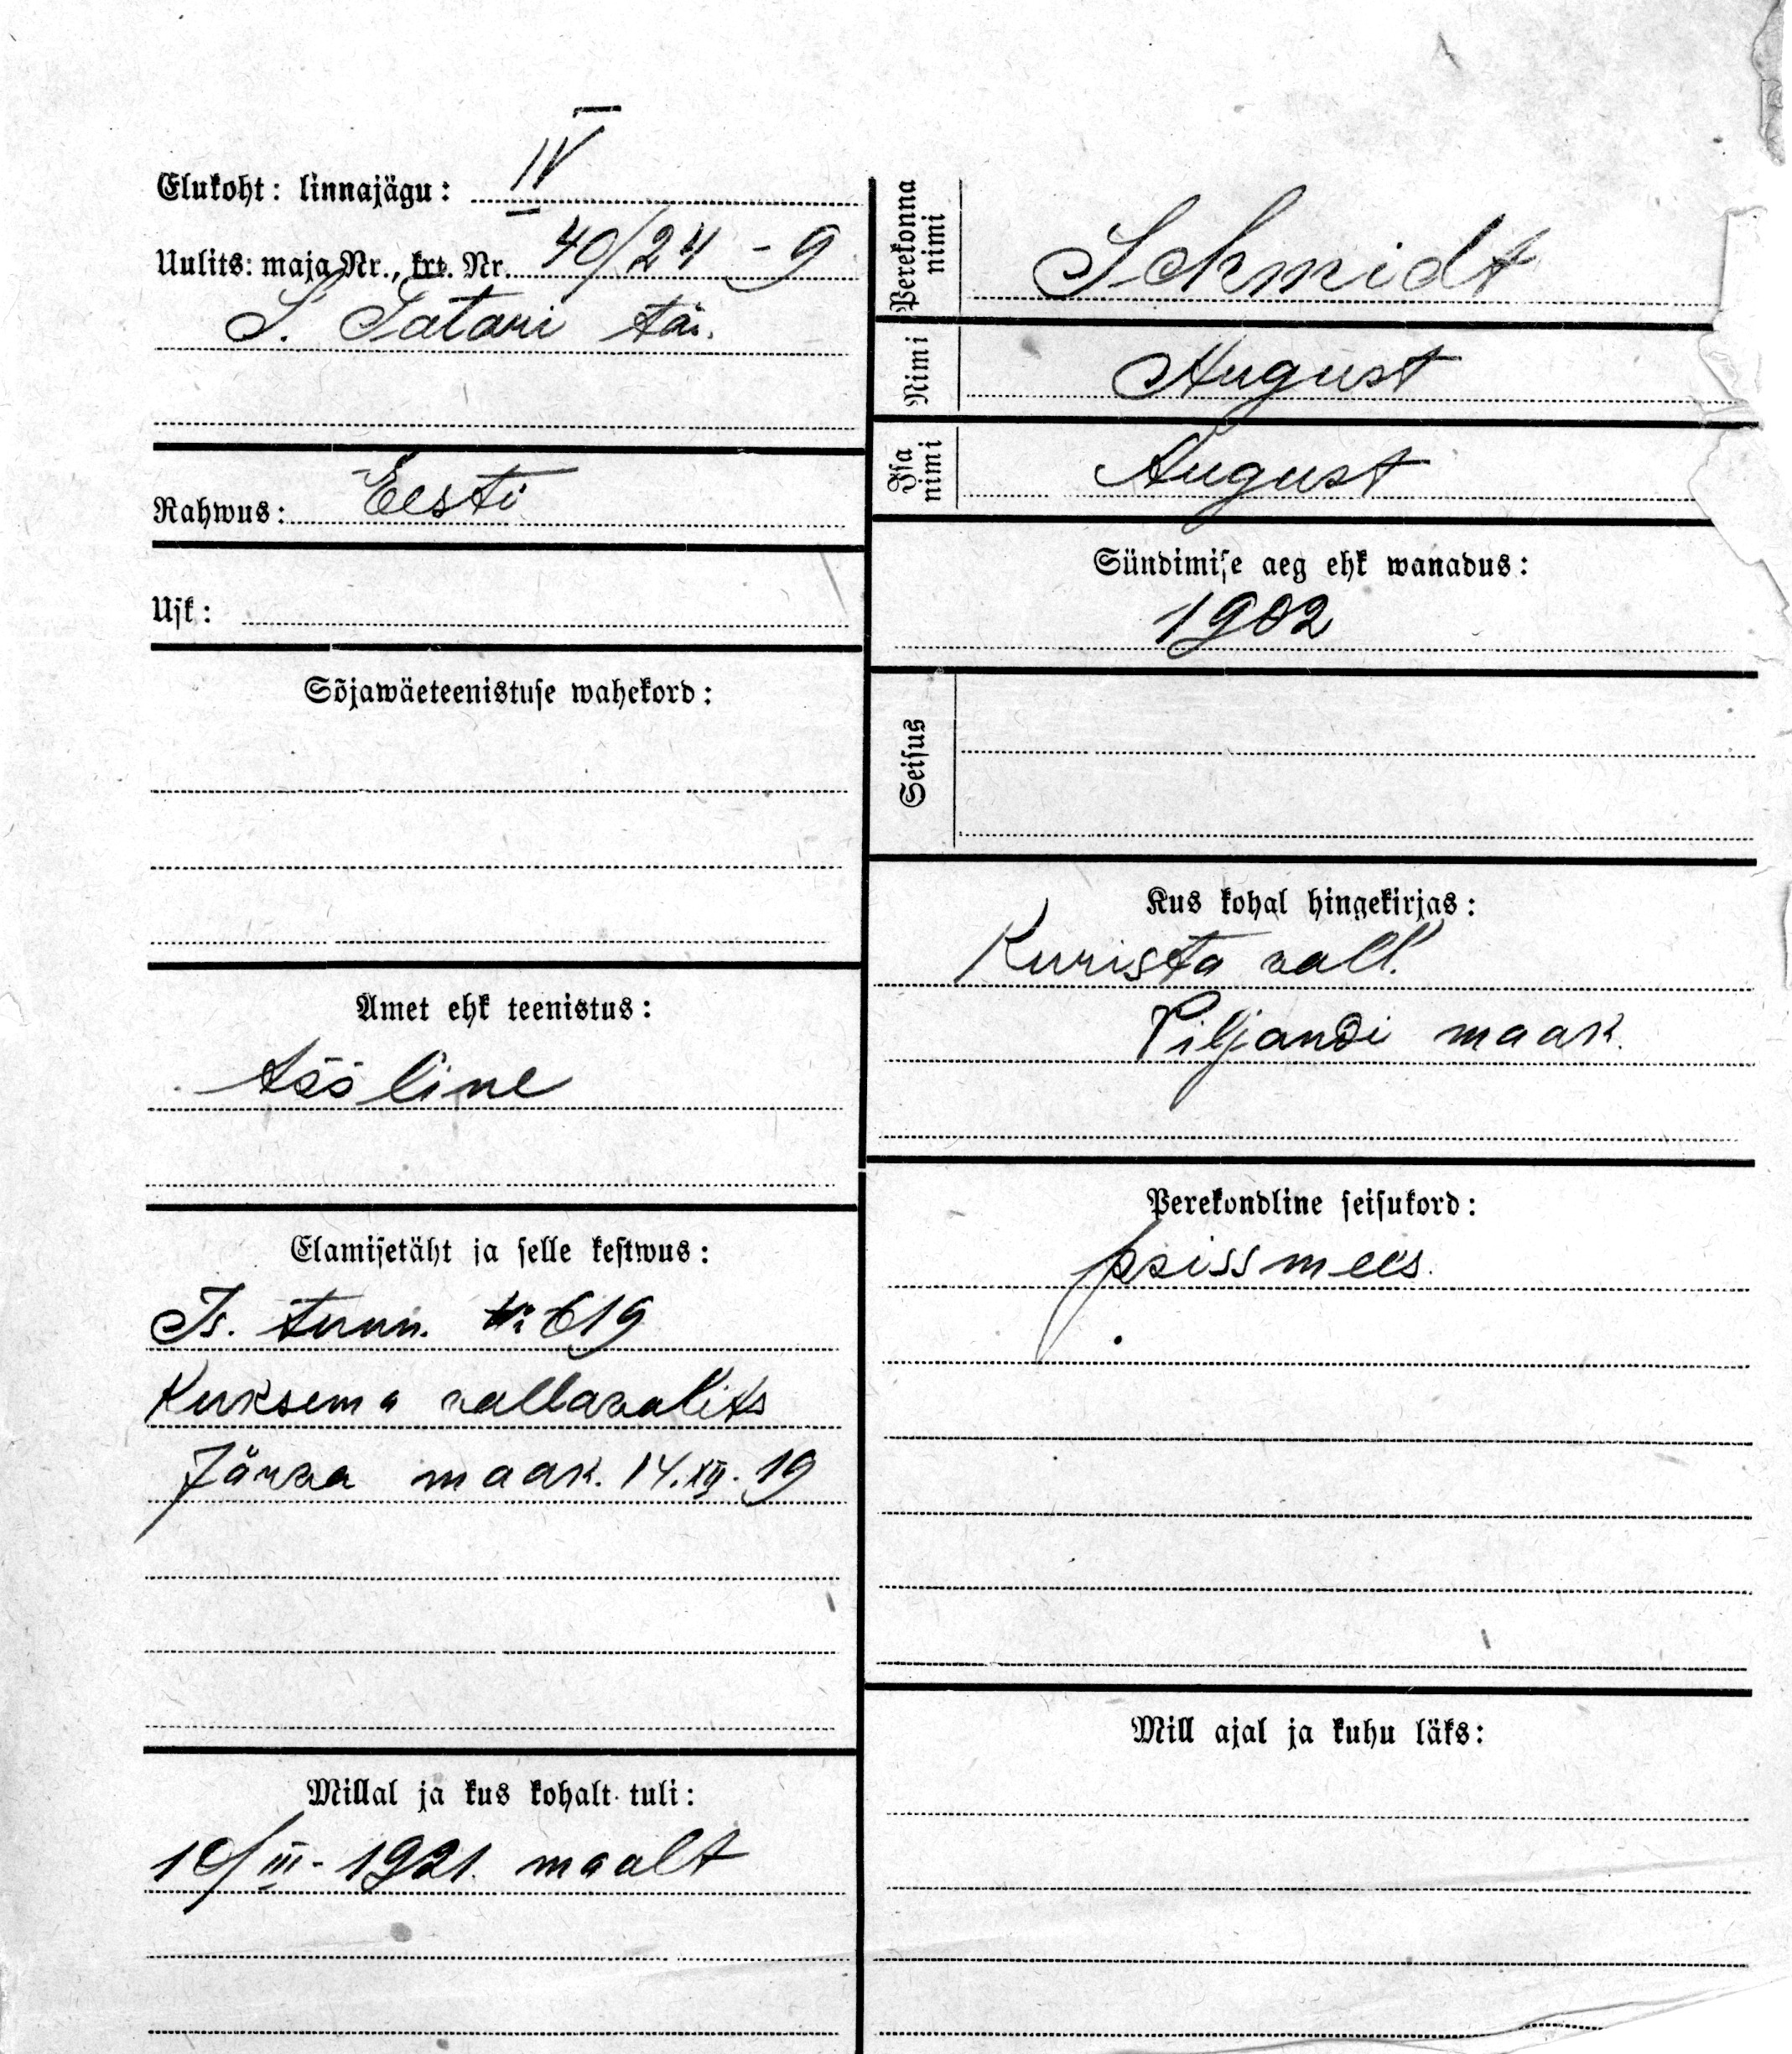 Elukoht: linnajägu: IV
Uulits: maja Nr., krt. Nr. 40/24 - 9
S. Tatari tän.
Rahwus: Eesti
Usk:
Sõjawäeteenistuse wahekord:
Amet ehk teenistus:
tööline
Elamisetäht ja selle kestwus:
Is. tunn. № 619
Kuksema vallavalits
Järva maak. 14.XII.19
Millal ja kus kohalt tuli:
10/III - 1921. maalt
Perekonna nimi Schmidt
Nimi August
Isa nimi August
Sündimise aeg ehk wanadus:
1902
Seisus
Kus kohal hingekirjas:
Kurista vall.
Viljandi maak.
Perekondline seisukord:
poissmees.
Mill ajal ja kuhu läks: